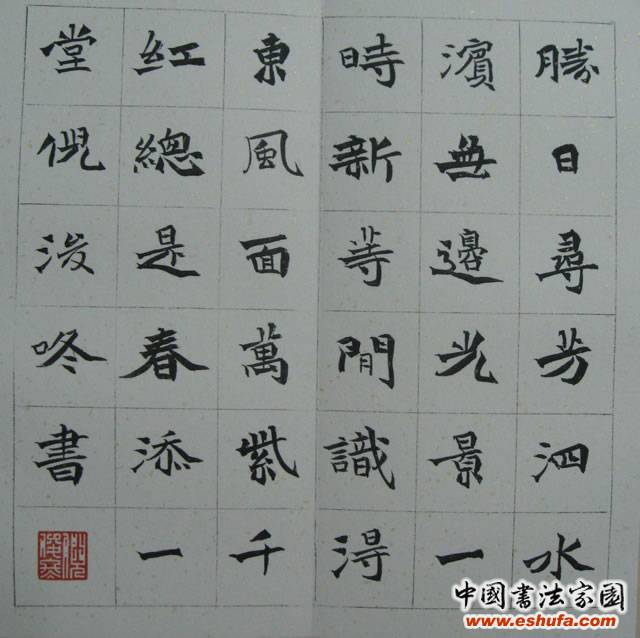 勝日尋芳泗水
濱無邊光景一
時新等閒識得
東風面萬紫千
紅總是春添一
堂倪浚咚書
中國書法家園
www.eshufa.com